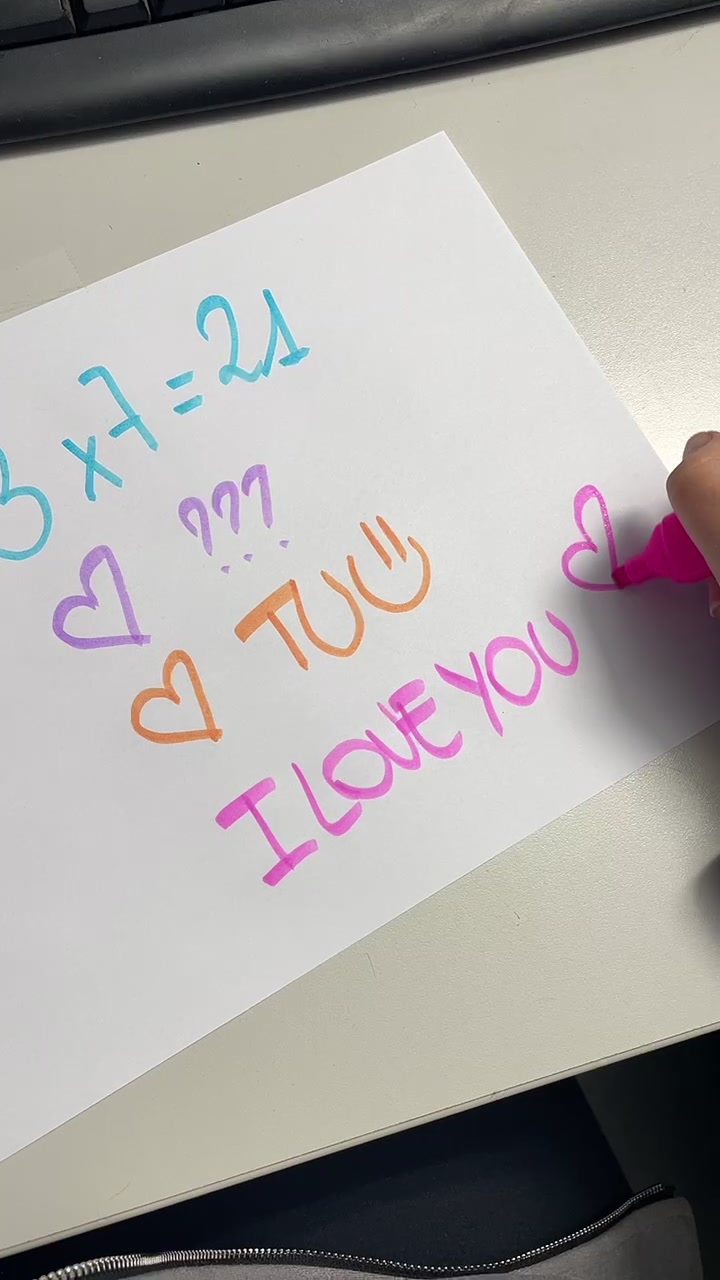 3 x 7 = 21
???
TU
I LOVE YOU